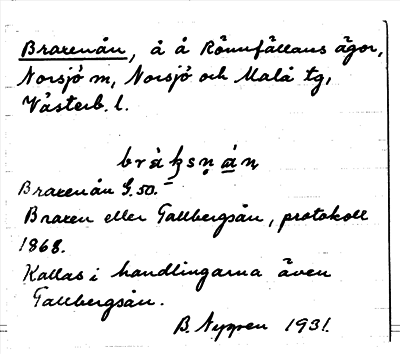 Braxenån, å å Rönnfällans ägor,
Norsjö m, Norsjö och Malå tg,
Västerb. l.
Braxenån G.50.
Braxen eller Tallbergsån, protokoll
1868.
Kallas i handlingarna även
Tallbergsån.
B. Nygren 1931.